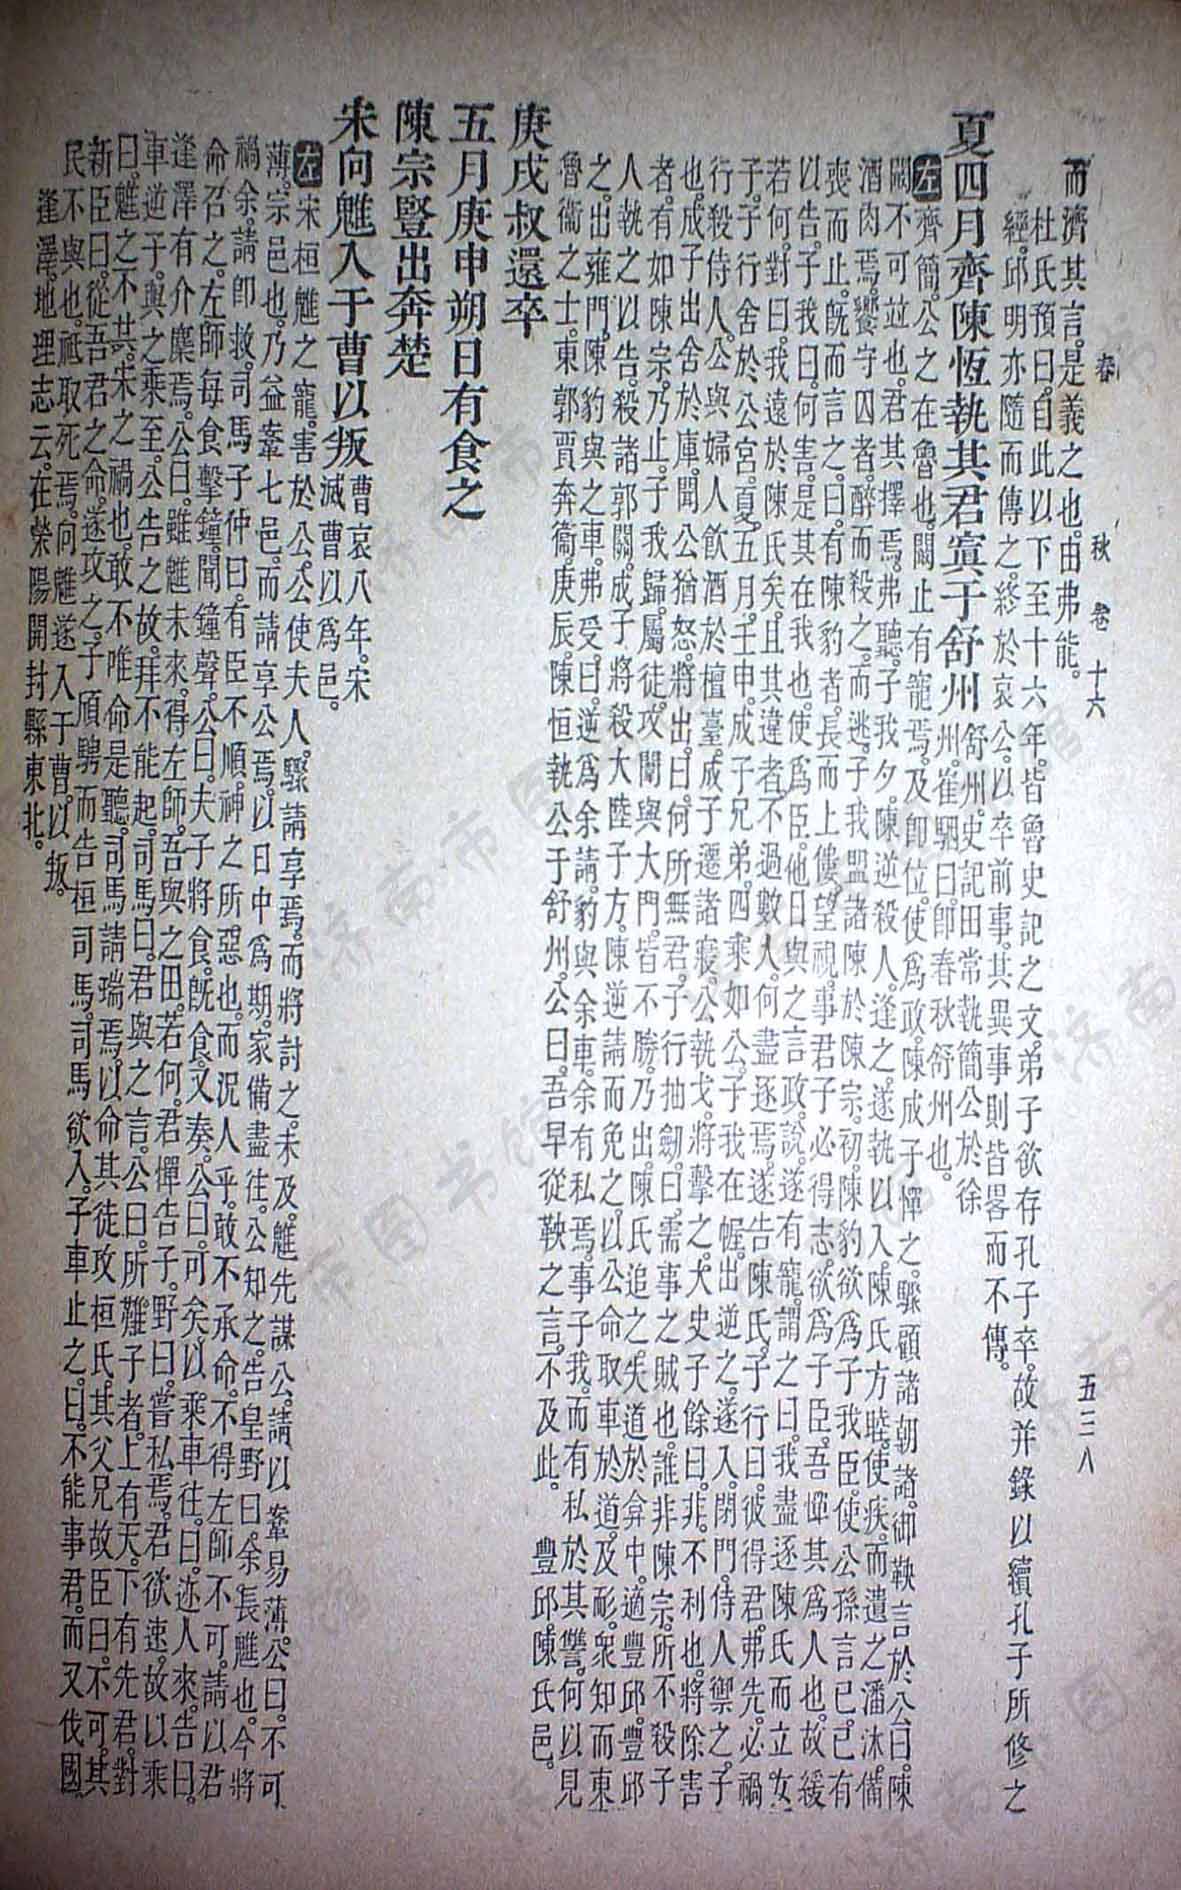 春　秋　卷十六　五三八
而濟其言。是義之也。由弗能。
杜氏預曰。自此以下至十六年。皆魯史記之文。弟子欲存孔子卒。故并錄以續孔子所修之
經。邱明亦隨而傳之。終於哀公。以卒前事。其異事則皆畧而不傳。
夏四月齊陳恆執其君寘于舒州 舒州。史記田常執簡公於徐
州。崔駰曰。卽春秋舒州也。
左 齊簡公之在魯也。闞止有寵焉。及卽位。使爲政。陳成子憚之。驟顧諸朝。諸御鞅言於公曰。陳
闞不可竝也。君其擇焉。弗聽。子我夕。陳逆殺人。逢之。遂執以入。陳氏方睦。使疾。而遺之潘沐。備
酒肉焉。饗守囚者。醉而殺之。而逃。子我盟諸陳於陳宗。初。陳豹欲爲子我臣。使公孫言己。已有
喪而止。旣而言之。曰。有陳豹者。長而上僂。望視。事君子必得志。欲爲子臣。吾憚其爲人也。故緩
以告。子我曰。何害。是其在我也。使爲臣。他日與之言政。說。遂有寵。謂之曰。我盡逐陳氏而立女
若何。對曰。我遠於陳氏矣。且其違者不過數人。何盡逐焉。遂告陳氏。子行曰。彼得君。弗先。必禍
子。子行舍於公宮。夏。五月。壬申。成子兄弟四乘如公。子我在幄。出逆之。遂入。閉門。侍人禦之。子
行殺侍人。公與婦人飲酒於檀臺。成子遷諸寢。公執戈。將擊之。大史子餘曰。非不利也。將除害
也。成子出舍於庫。聞公猶怒。將出。曰。何所無君。子行抽劒。曰。需。事之賊也。誰非陳宗。所不殺子
者。有如陳宗。乃止。子我歸。屬徒攻闈與大門。皆不勝。乃出。陳氏追之。失道於弇中。適豐邱。豐邱
人執之以告。殺諸郭關。成子將殺大陸子方。陳逆請而免之。以公命取車於道。及耏。衆知而東
之。出雍門。陳豹與之車。弗受。曰。逆爲余請。豹與余車。余有私焉。事子我。而有私於其讐。何以見
魯衞之士。東郭賈奔衞。庚辰。陳恒執公于舒州。公曰。吾早從鞅之言。不及此。　豐邱。陳氏邑。
庚戌叔還卒
五月庚申朔日有食之
陳宗豎出奔楚
宋向魋入于曹以叛 曹哀八年。宋
滅曹以爲邑。
左 宋桓魋之寵。害於公。公使夫人。驟請享焉。而將討之。未及。魋先謀公。請以鞌易薄。公曰。不可
薄。宗邑也。乃益鞌七邑。而請享公焉。以日中爲期。家備盡往。公知之。告皇野曰。余長魋也。今將
禍余。請卽救。司馬子仲曰。有臣不順。神之所惡也。而況人乎。敢不承命。不得左師不可。請以君
命召之。左師每食擊鐘。聞鐘聲。公曰。夫子將食。旣食。又奏。公曰。可矣。以乘車往。曰。迹人來告曰。
逢澤有介麇焉。公曰。雖魋未來。得左師。吾與之田。若何。君憚告子。野曰。嘗私焉。君欲速。故以乘
車逆子。與之乘。至。公告之故。拜不能起。司馬曰。君與之言。公曰。所難子者。上有天。下有先君。對
曰。魋之不共。宋之禍也。敢不唯命是聽。司馬請瑞焉。以命其徒攻桓氏。其父兄故臣曰。不可。其
新臣曰。從吾君之命。遂攻之。子頎騁而告桓司馬。司馬欲入。子車止之。曰。不能事君。而又伐國
民不與也。祗取死焉。向魋遂入于曹。以叛。
逢澤。地理志云。在滎陽開封縣東北。